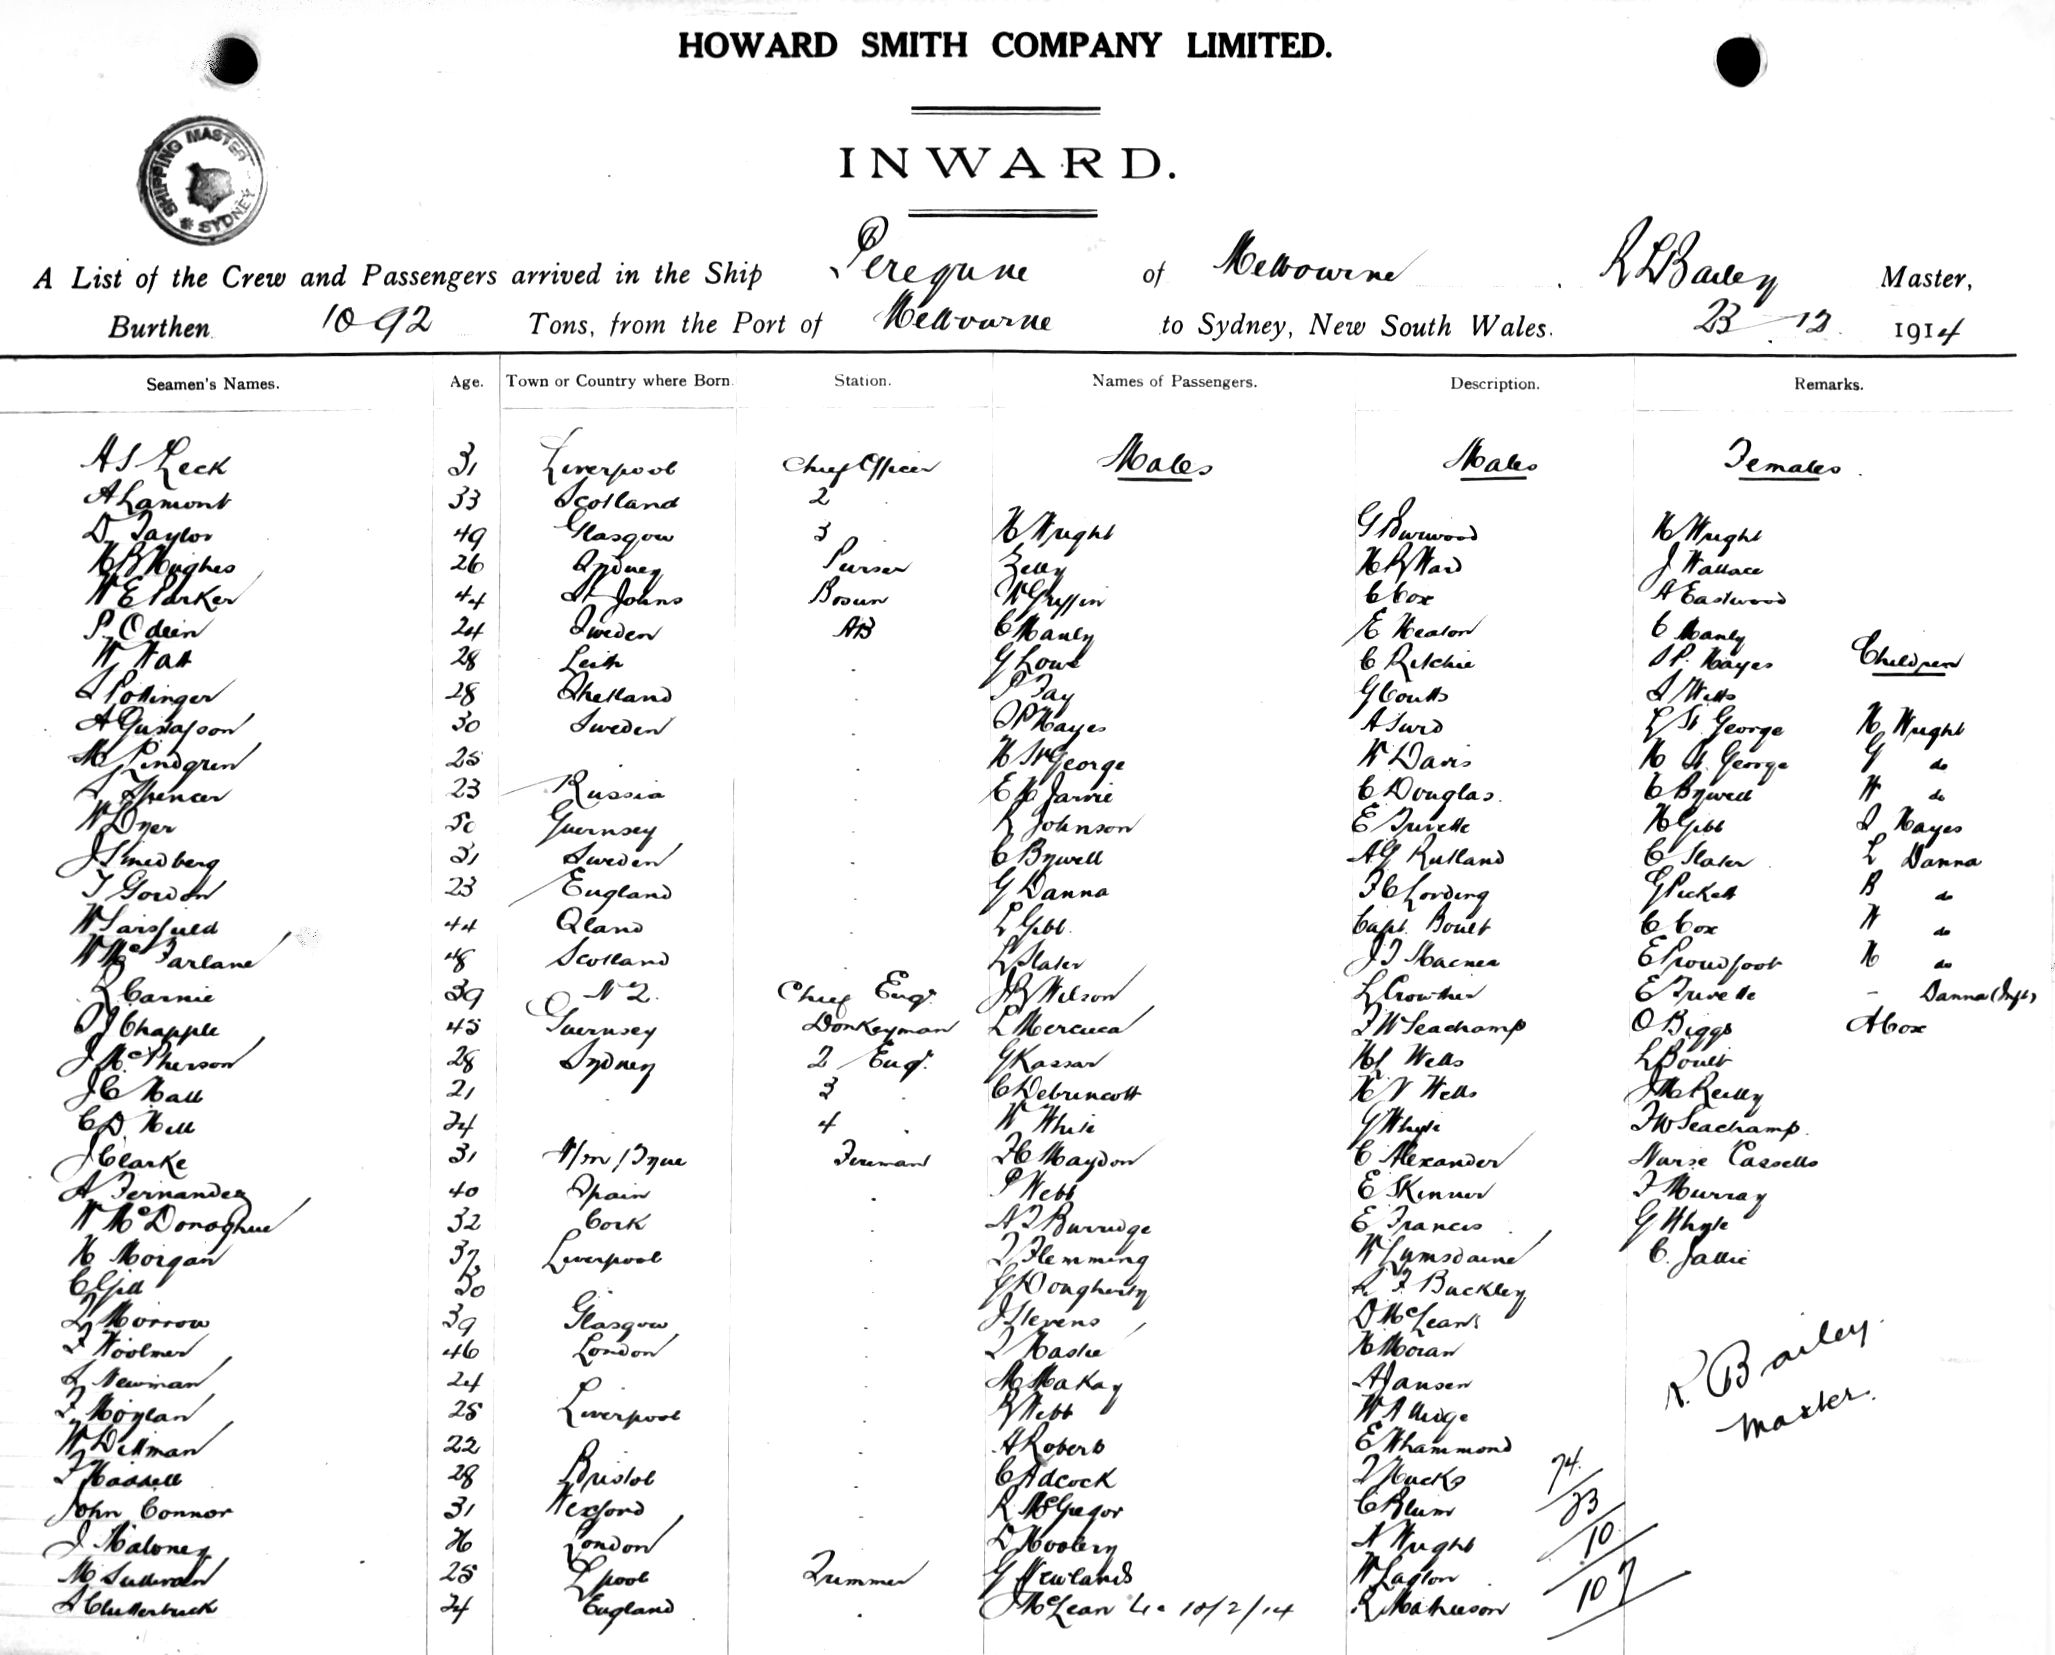 HOWARD SMITH COMPANY LIMITED.
INWARD.
SHIPPING MASTER SYDNEY
A List of the Crew and Passengers arrived in the Ship Peregrine of Melbourne R L Bailey Master,
Burthen 1092 Tons, from the Port of Melbourne to Sydney, New South Wales. 23-12 1914
Seamen's Names. Age. Town or Country where Born. Station. Names of Passengers. Description. Remarks.
A S Leck 31 Liverpool Chief Officer Males Males Females
A Lamont 33 Scotland 2
D Taylor 49 Glasgow 3 H Wright G Burwood H Wright
H B Hughes 26 Sydney Purser Zelly H R Ward J Wallace
W E Parker 44 St Johns Bosun W Griffin C Cox A Eastwood
P. Odein 24 Sweden AB C Manly E Heaton C Manly
W Watt 28 Leith G Lowe C Ritchie S P. Hayes Children
S Pottinger 28 Shetland P Fay G Coutts S Watts
A Gustafson 30 Sweden S P Hayes A Surd L St. George H Wright
M Lindgren 25 H St George W Davis H St. George G do
S Spencer 23 Russia E H Jarvie C Douglas. C Bywell W do
W Dyer 50 Guernsey R Johnson E Turette H Gibb S Hayes
J Smedberg 31 Sweden C Bywell A G Rutland C Slater L Danna
T Gordon 23 England G Danna F C Lording G Pickett B do
W Sarsfield 44 Qland L Gibb. Capt. Boult C Cox W do
W McFarlane 48 Scotland L Slater J T Macnea E Proudfoot H do
R Carnie 39 N Z. Chief Engr. J R Wilson L Crowther E Turette - Danna (Inft)
T J Chapple 45 Guernsey Donkeyman L Mercuca F W Seachamp O Biggs A Cox
J McPherson 28 Sydney 2 Engr. G Kassar H L Wells L Boult
J C Hall 21 3 C Debrincott H V Wells J M Reilly
C D Hill 24 4 W White G Whyte F W Seachamp.
J Clarke 31 N/on/Tyne Fireman F C Haydon C Alexander Nurse Cassells
A Fernandez 40 Spain P Webb E Skinner F Murray
W McDonoghue 32 Cork A T Burridge E Francis G Whyte
H Morgan 37 Liverpool T Flemming W Lumsdaine C. Jallie
C Gill 30 G Dougherty R. F Buckley
T Morrow 39 Glasgow J Stevens D McLean
F Woolmer 46 London T Haslie H Moran
S Newman 24 M McKay A Jansen R. Bailey
F Moylan 25 Liverpool R Webb W Alldige Master.
W Dillman 22 A Roberts E Whammond
F Hassell 28 Bristol C Adcock T Hucks 74
John Connor 31 Wexford R McGregor C Blum 23
J Maloney 26 London D Hoolery N Wright 10
M Sullivan 25 L'pool Trimmer G Newlands W Laglon 107
A Clutterbuck 24 England J McLean Lic 10/2/14 R Matheeson